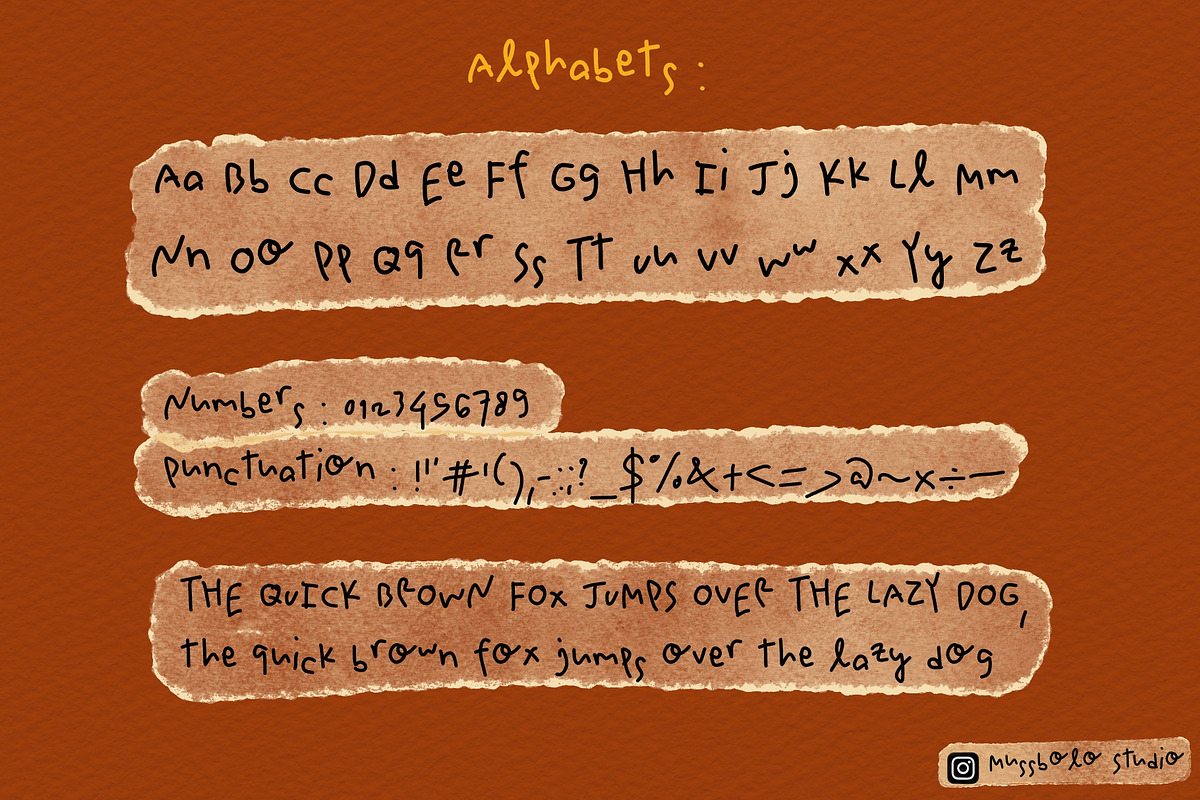 Alphabets :
Aa Bb Cc Dd Ee Ff Gg Hh Ii Jj Kk Ll Mm
Nn Oo Pp Qq Rr Ss Tt Uu Vv Ww Xx Yy Zz
Numbers : 0123456789
Punctuation : !"#'(),-.:;?_$%&+<=>@~×÷—
THE QUICK BROWN FOX JUMPS OVER THE LAZY DOG,
the quick brown fox jumps over the lazy dog
Mussbolo studio